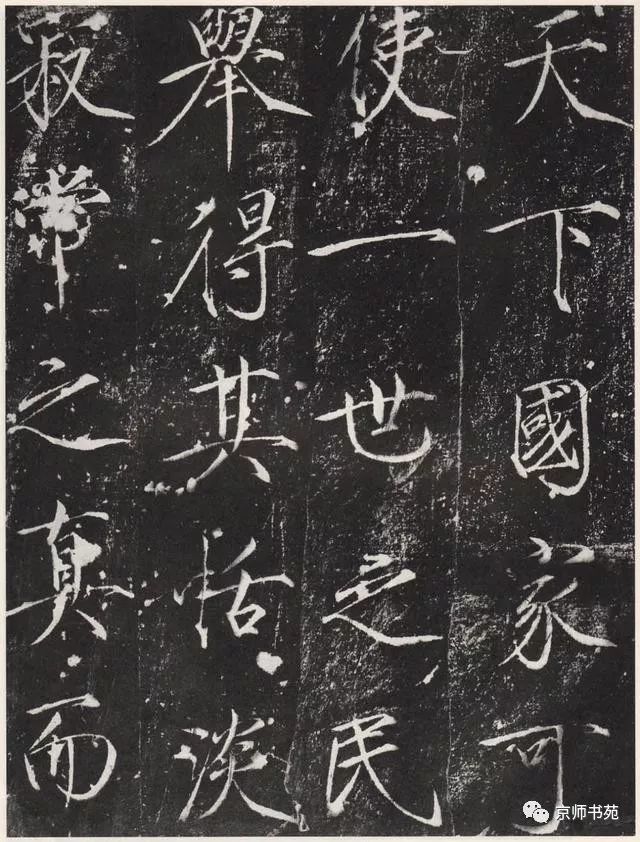 天下國家可
使一世之民
舉得其恬淡
寂常之真而
京师书苑